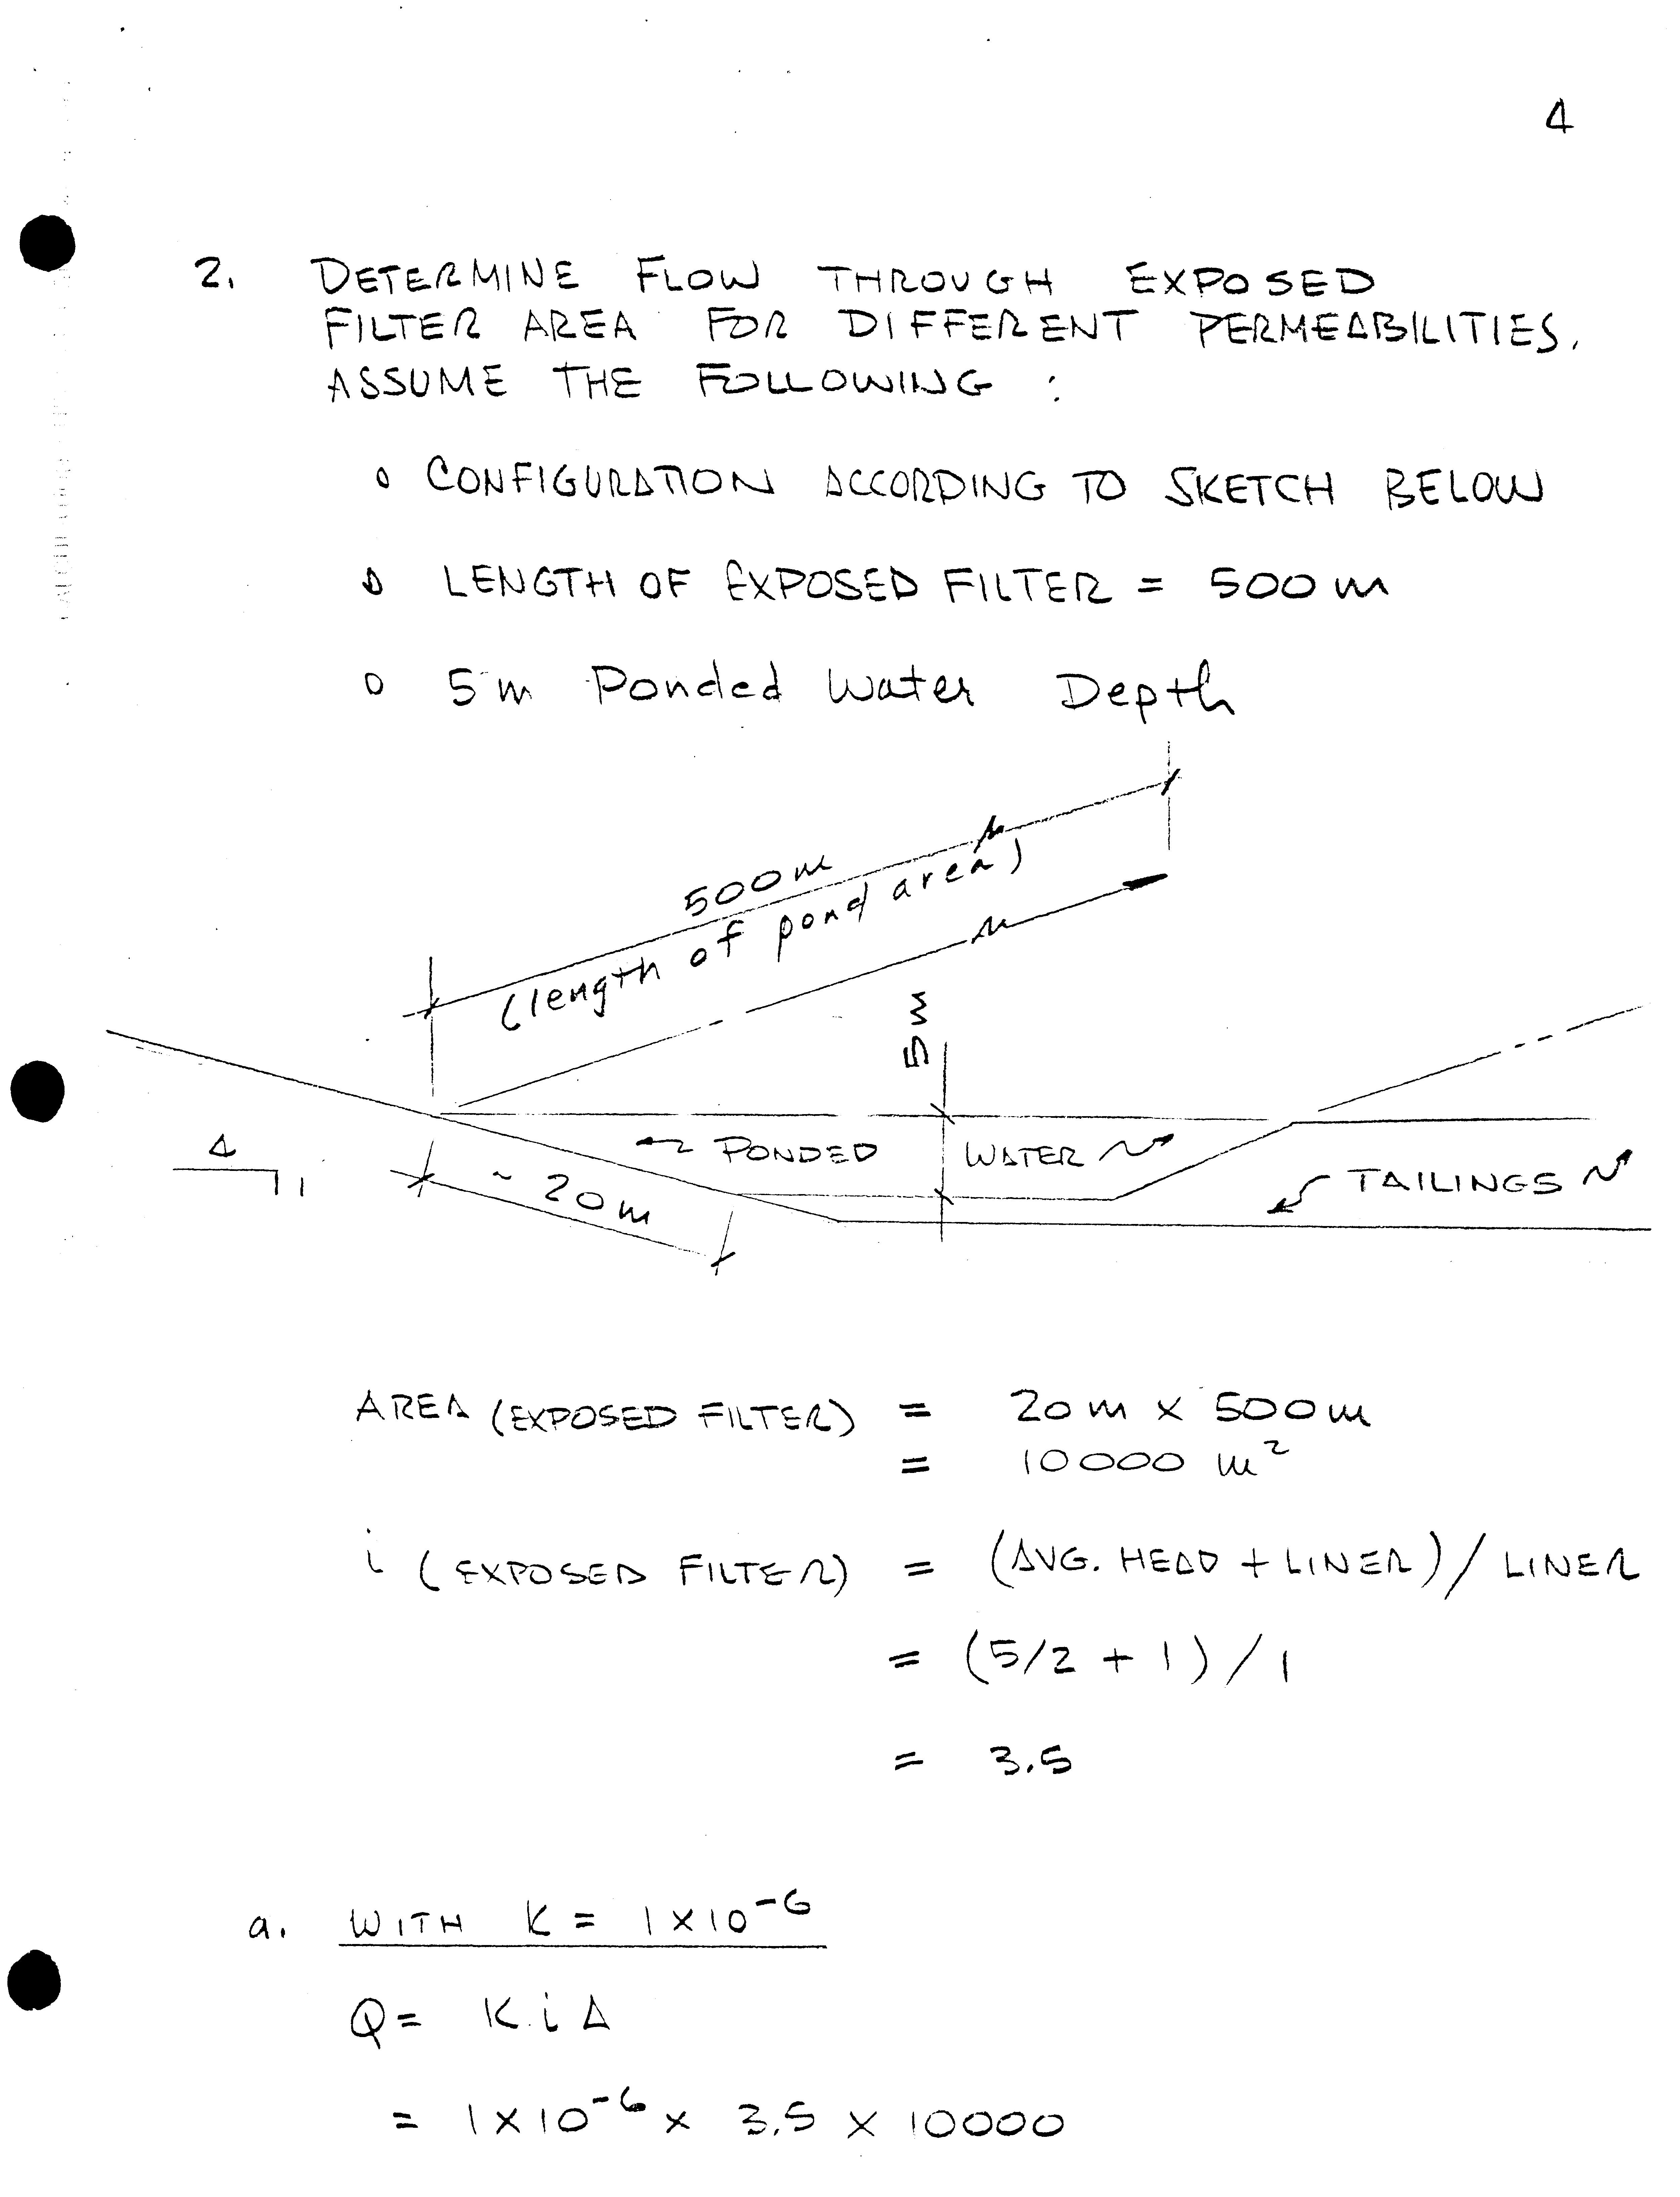 4
2. DETERMINE FLOW THROUGH EXPOSED
FILTER AREA FOR DIFFERENT PERMEABILITIES.
ASSUME THE FOLLOWING :
o CONFIGURATION ACCORDING TO SKETCH BELOW
o LENGTH OF EXPOSED FILTER = 500 m
o 5 m Ponded Water Depth
500 m
(length of pond area)
5 m
PONDED WATER
4
1
~ 20 m
TAILINGS
AREA (EXPOSED FILTER) = 20 m x 500 m
= 10000 m²
i (EXPOSED FILTER) = (AVG. HEAD + LINER) / LINER
= (5/2 + 1) / 1
= 3.5
a. WITH K = 1 x 10⁻⁶
Q = K i A
= 1 x 10⁻⁶ x 3.5 x 10000